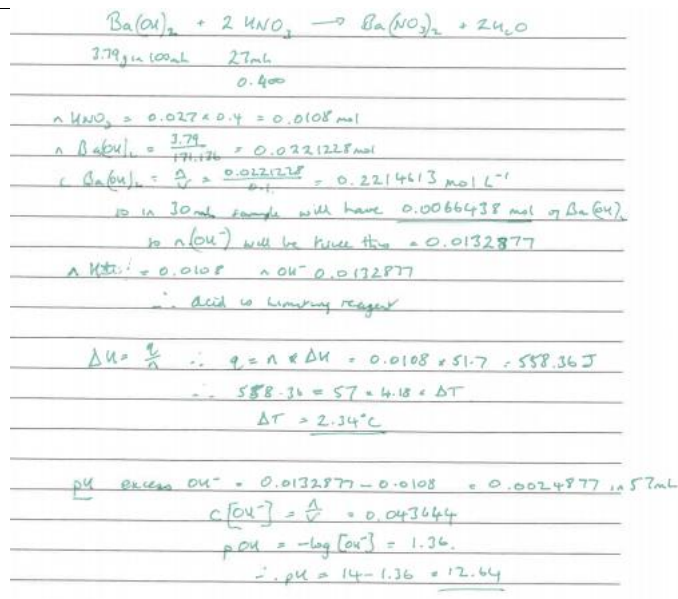 Ba(OH)₂ + 2 HNO₃ → Ba(NO₃)₂ + 2H₂O
3.79g in 100mL 27mL
0.400
n HNO₃ = 0.027 × 0.4 = 0.0108 mol
n Ba(OH)₂ = 3.79/171.136 = 0.0221228 mol
c Ba(OH)₂ = n/V = 0.0221228/0.1 = 0.2214613 mol L⁻¹
so in 30mL sample will have 0.0066438 mol of Ba(OH)₂
so n(OH⁻) will be twice this = 0.0132877
n = 0.0108 n OH⁻ 0.0132877
∴ acid is limiting reagent
ΔH = q/n ∴ q = n × ΔH = 0.0108 × 51.7 = 558.36J
∴ 558.36 = 57 × 4.18 × ΔT
ΔT = 2.34°C
pH excess OH⁻ = 0.0132877 - 0.0108 = 0.0024877 in 57mL
c[OH⁻] = n/V = 0.043644
pOH = -log [OH⁻] = 1.36.
∴ pH = 14 - 1.36 = 12.64